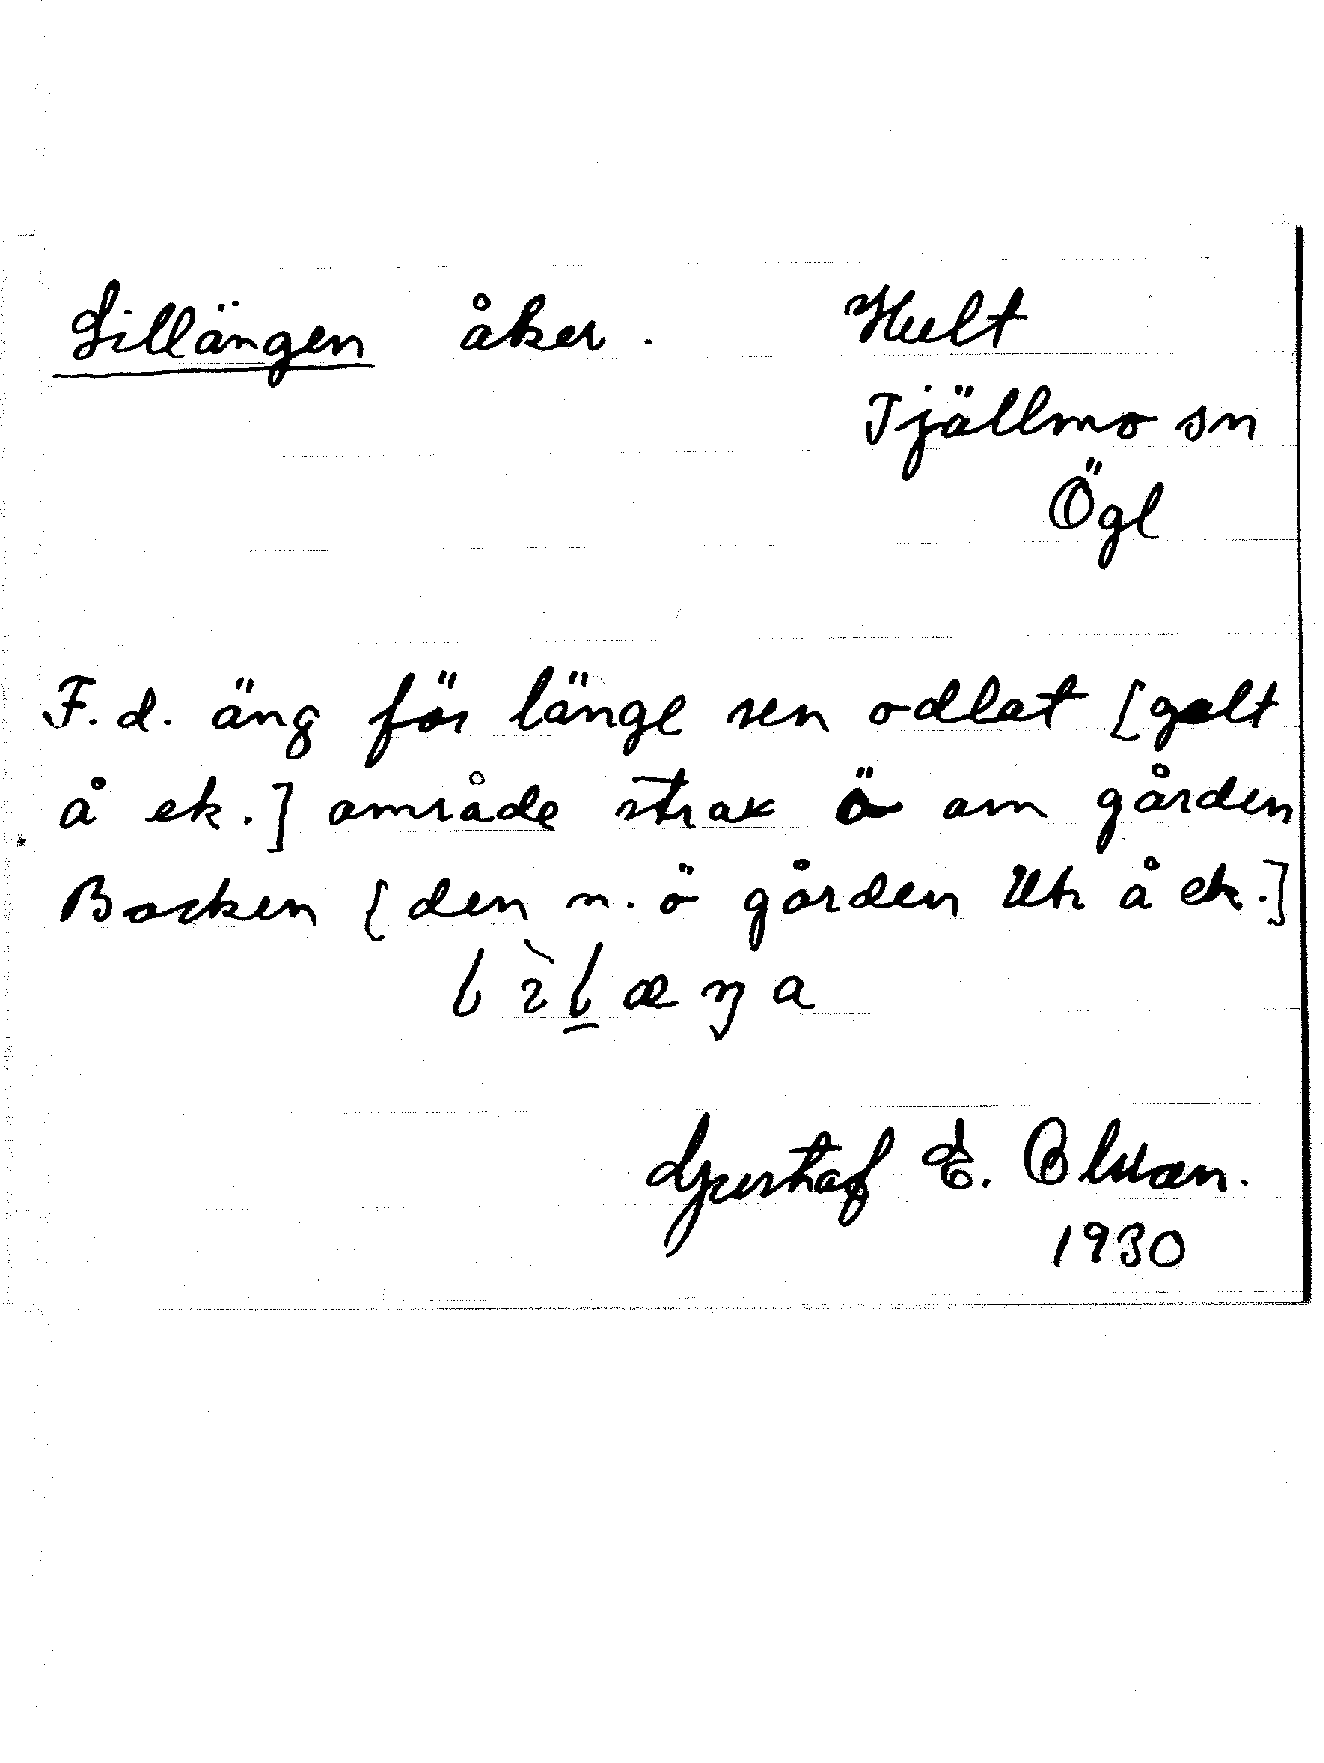 Lillängen åker. Hult
Tjällmo sn
Ögl
F. d. äng för länge sen odlat [gult
å ek.] område strax ö om gården
Backen [den n. ö gården Uh å ek.]
Gustaf E. Olsson.
1930